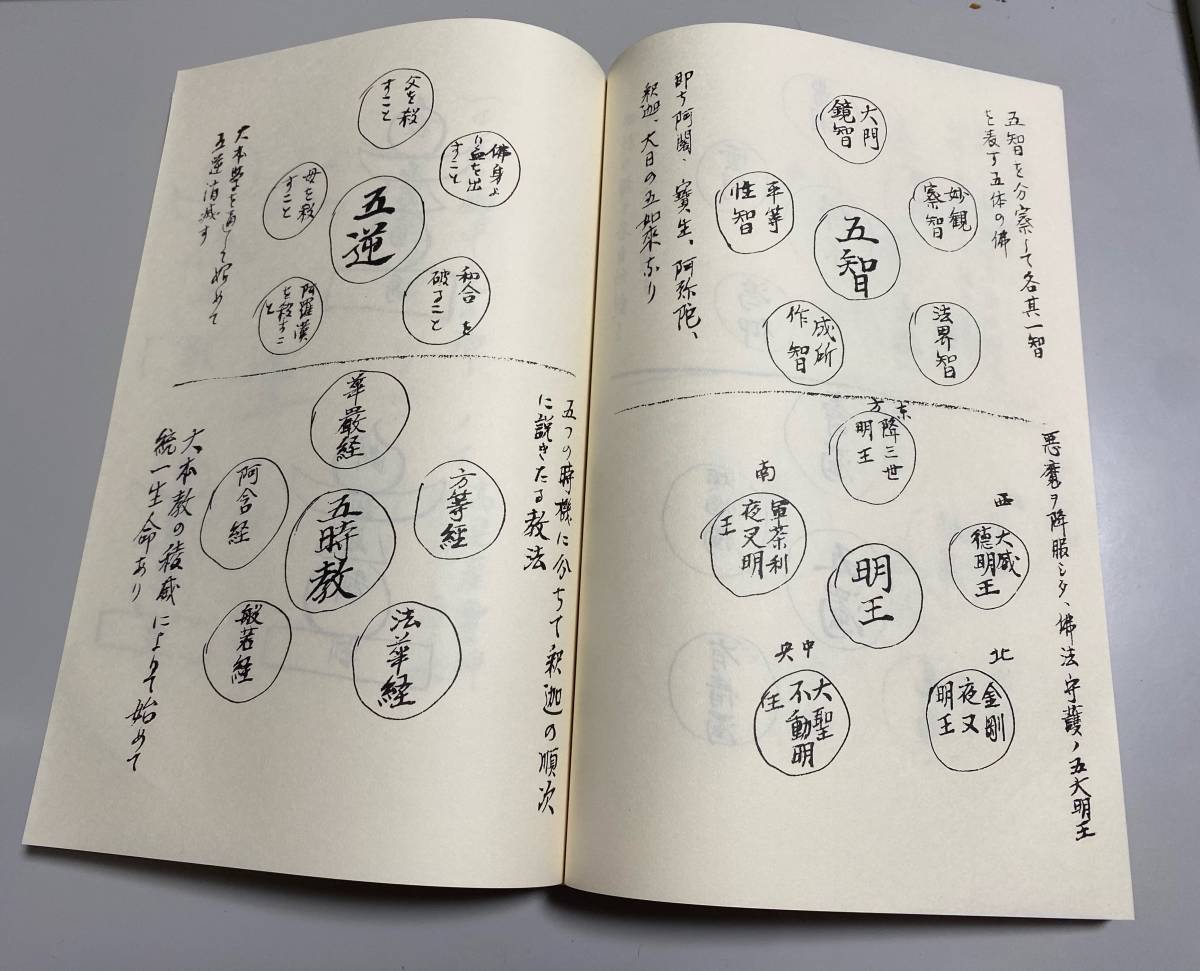 五智を分察して各其一智
を表す五体の佛
五智
大門
鏡智
妙観
察智
平等
性智
法界智
成所
作智
即ち阿閦、寶生、阿弥陀、
釈迦、大日の五如来なり
悪魔ヲ降服シタ、佛法守護ノ五大明王
明王
東方
降三世
明王
西
大威
徳明王
南
軍荼利
夜叉明
王
北
金剛
夜叉
明王
中央
大聖
不動明
王
五逆
父を殺
すこと
佛身よ
り血を出
すこと
母を殺
すこと
和合を
破ること
阿羅漢
を殺すこ
と
大本学を通して始めて
五逆消滅す
五つの時機に分ちて釈迦の順次
に説きたる教法
五時教
華嚴経
方等経
阿含経
法華経
般若経
大本教の稜威によりて始めて
統一生命あり